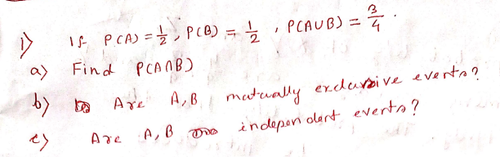 1) If P(A) = 1/2, P(B) = 1/2, P(A∪B) = 3/4.
a) Find P(A∩B)
b) Are A, B mutually exclusive events?
c) Are A, B independent events?